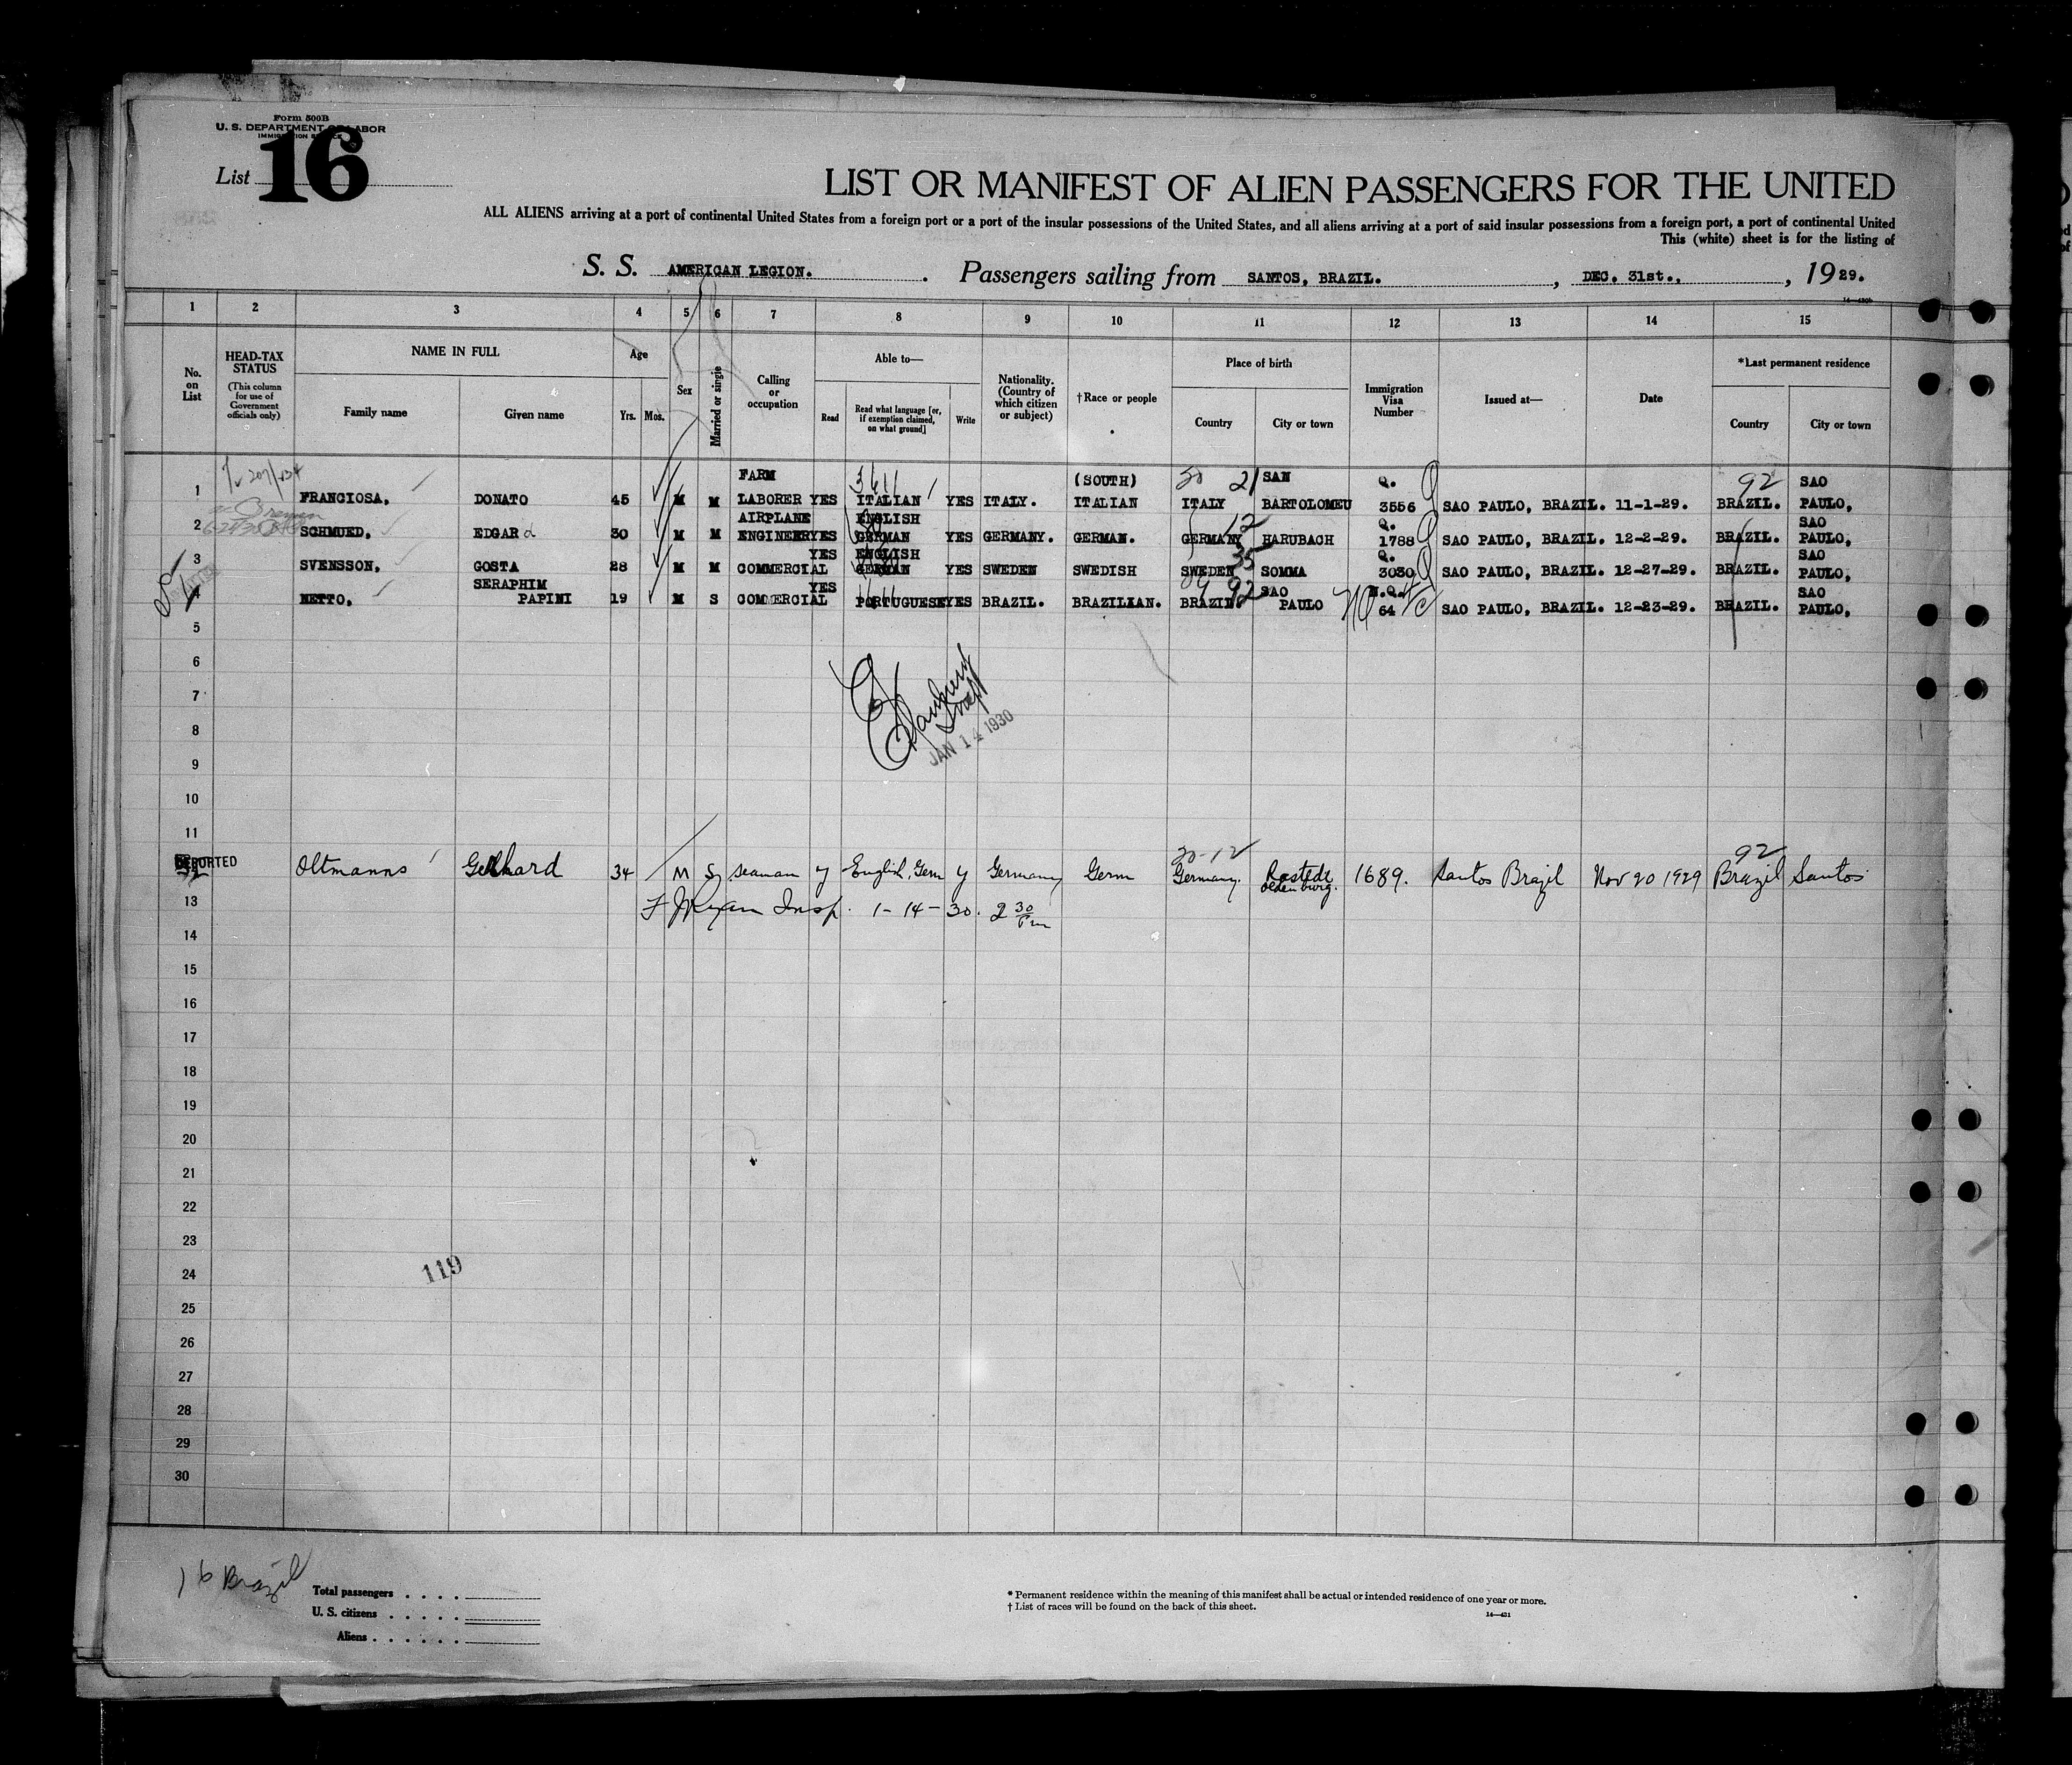 Form 500B
U. S. DEPARTMENT OF LABOR
IMMIGRATION SERVICE
List 16
LIST OR MANIFEST OF ALIEN PASSENGERS FOR THE UNITED
ALL ALIENS arriving at a port of continental United States from a foreign port or a port of the insular possessions of the United States, and all aliens arriving at a port of said insular possessions from a foreign port, a port of continental United
This (white) sheet is for the listing of
S. S. AMERICAN LEGION. Passengers sailing from SANTOS, BRAZIL. , DEC. 31st., , 1929.
1 2 3 4 5 6 7 8 9 10 11 12 13 14 15
No. on List
HEAD-TAX STATUS (This column for use of Government officials only)
NAME IN FULL Family name Given name
Age Yrs. Mos.
Sex
Married or single
Calling or occupation
Able to— Read Read what language [or, if exemption claimed, on what ground] Write
Nationality. (Country of which citizen or subject)
†Race or people
Place of birth Country City or town
Immigration Visa Number
Issued at—
Date
*Last permanent residence Country City or town
1 FRANCIOSA, DONATO 45 M M FARM LABORER YES ITALIAN YES ITALY. (SOUTH) ITALIAN ITALY SAN BARTOLOMEU Q. 3556 SAO PAULO, BRAZIL. 11-1-29. BRAZIL. SAO PAULO,
2 SCHMUED, EDGAR d 30 M M AIRPLANE ENGINEER YES ENGLISH GERMAN YES GERMANY. GERMAN. GERMANY HARUBACH Q. 1788 SAO PAULO, BRAZIL. 12-2-29. BRAZIL. SAO PAULO,
3 SVENSSON, GOSTA 28 M M COMMERCIAL YES ENGLISH GERMAN YES SWEDEN SWEDISH SWEDEN SOMMA Q. 3030 SAO PAULO, BRAZIL. 12-27-29. BRAZIL. SAO PAULO,
4 NETTO, SERAPHIM PAPINI 19 M S COMMERCIAL YES PORTUGUESE YES BRAZIL. BRAZILIAN. BRAZIL SAO PAULO N.Q. 64 SAO PAULO, BRAZIL. 12-23-29. BRAZIL. SAO PAULO,
5
6
7
JAN 14 1930
8
9
10
11
DEPORTED Oltmanns Gerhard 34 M S seaman y English, Germ y Germany Germ 20-12 Germany. Rastede Oldenburg. 1689. Santos Brazil Nov 20 1929 92 Brazil Santos
13 F J Ryan Insp. 1-14-30. 2 30 Pm
14
15
16
17
18
19
20
21
22
23
24 119
25
26
27
28
29
30
16 Brazil
Total passengers . . . .
U. S. citizens . . . . .
Aliens . . . . . .
* Permanent residence within the meaning of this manifest shall be actual or intended residence of one year or more.
† List of races will be found on the back of this sheet.
14—431